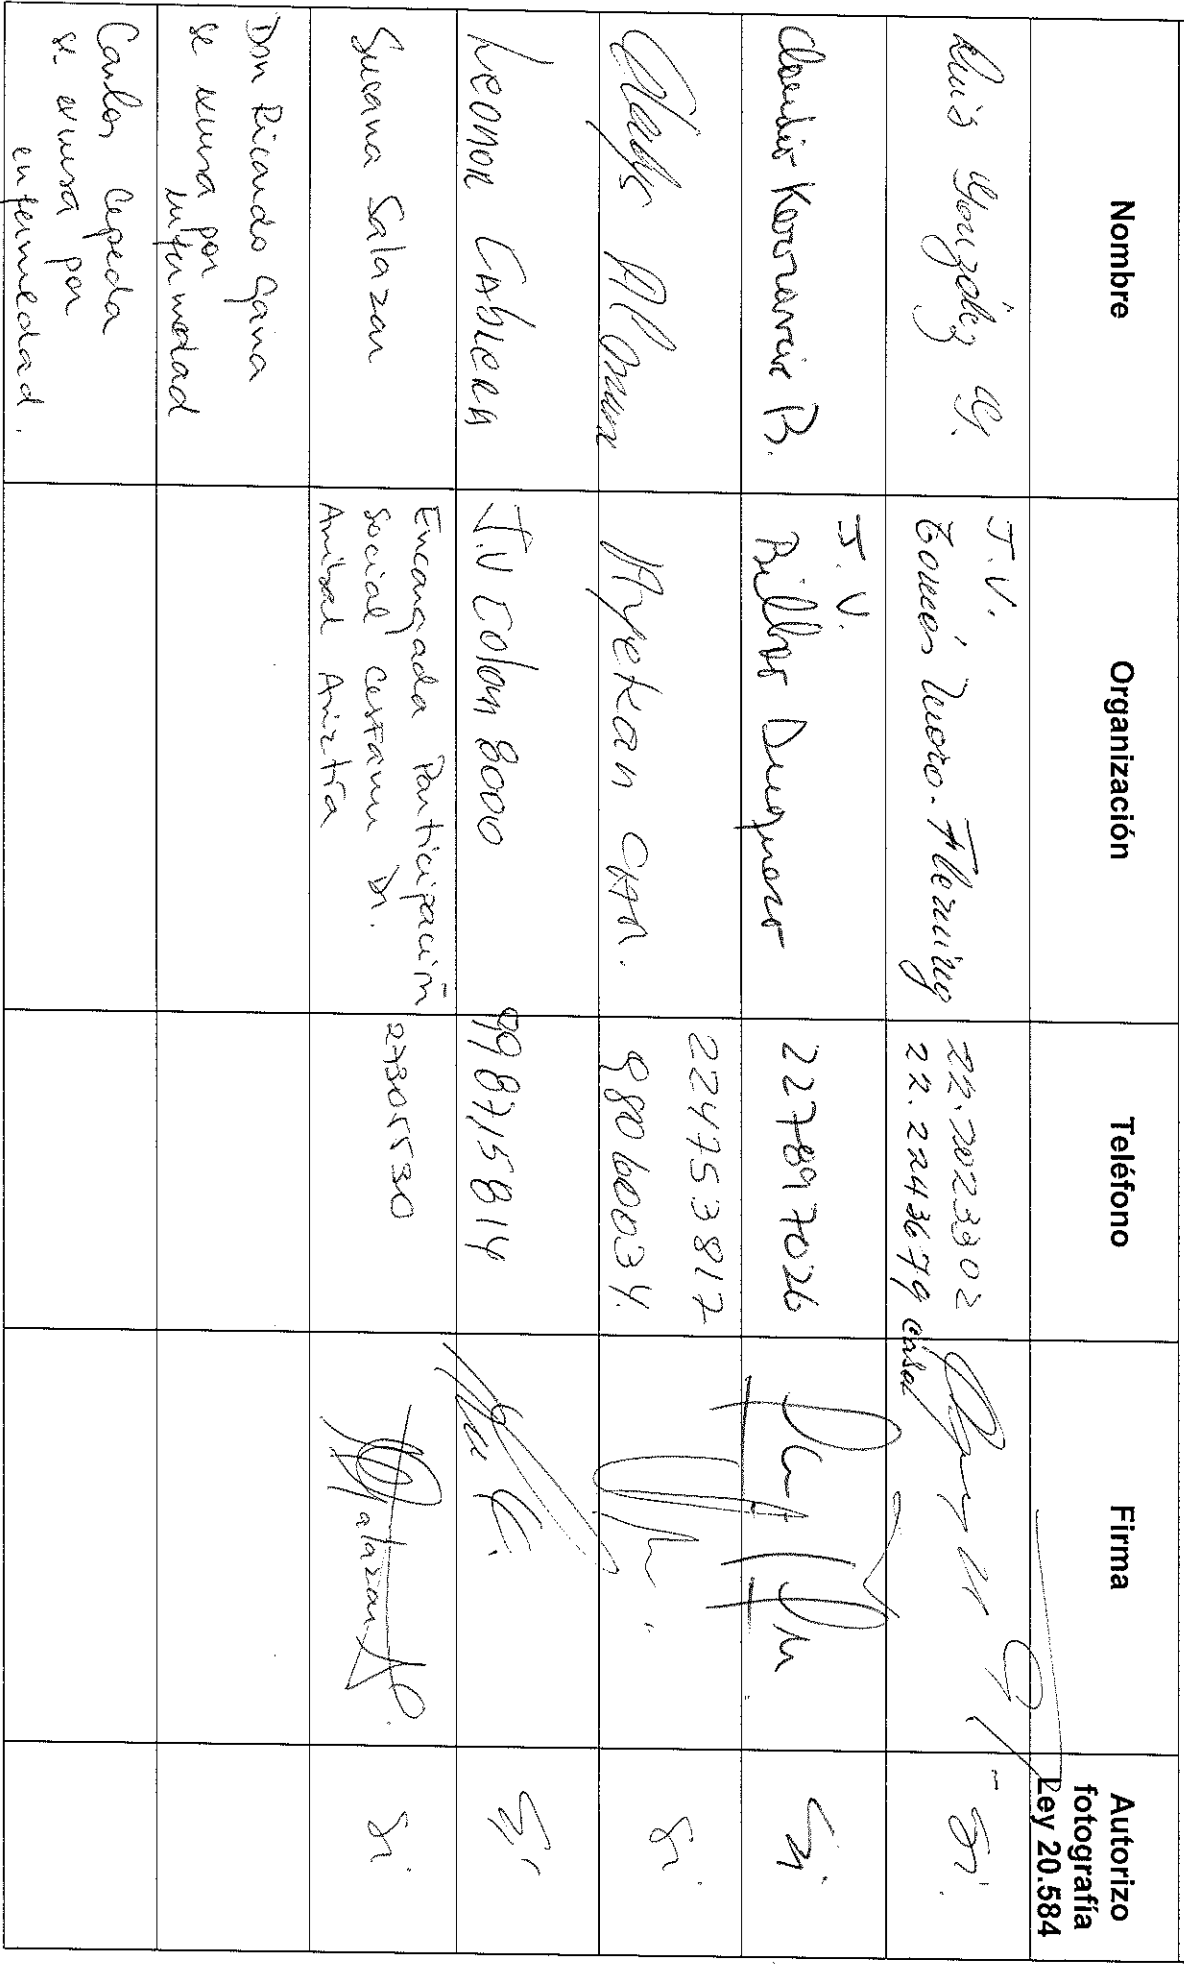 Nombre
Organización
Teléfono
Firma
Autorizo
fotografía
Ley 20.584
Luis González G.
J.V.
Tomás Moro-Fleming
22.2023302
22.2243679 casa
Si.
B.
J.V.
22789 7026
Si.
Gladys
Ayekan
224753817
98060034.
Si.
Leonor Cabrera
J.V Colon 8000
998715814
Si
Susana Salazar
Encargada Participación
social Cesfam Dr.
Anibal Ariztía
27305530
Salazar
Si.
Don Ricardo Gana
se excusa por
enfermedad
Carlos Cepeda
se excusa por
enfermedad.